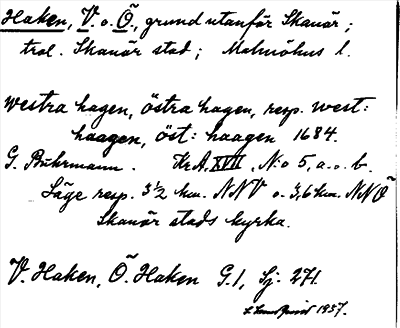 Haken, V. o. Ö., grund utanför Skanör;
trol. Skanör stad; Malmöhus l.
westra hagen, östra hagen, resp. west:
haagen, öst: haagen 1684.
G. Buhrmann. Kr.A, XVII, N:o 5, a. o. b.
Läge resp. 3 1/2 km. NNV o. 3,6 km. NNÖ
Skanör stads kyrka.
V. Haken, Ö. Haken G. 1, Sj. 271.
1937.